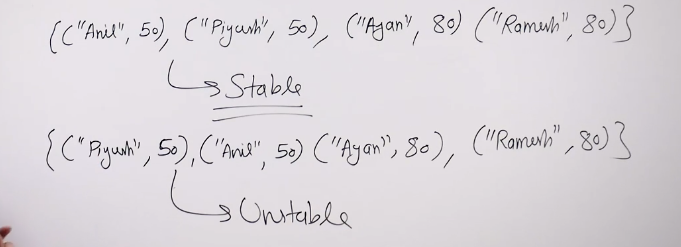 {("Anil", 50), ("Piyush", 50), ("Ayan", 80) ("Ramesh", 80)}
Stable
{("Piyush", 50), ("Anil", 50) ("Ayan", 80), ("Ramesh", 80)}
Unstable